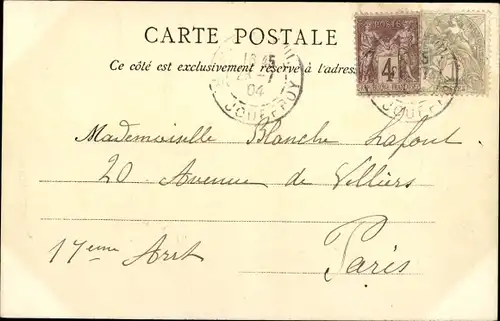 CARTE POSTALE
Ce côté est exclusivement réservé à l'adresse
POSTES
4
JOUFFROY
04
JOUFFROY
Mademoiselle Blanche Lafont
20 Avenue de Villiers
17eme Arrt
Paris